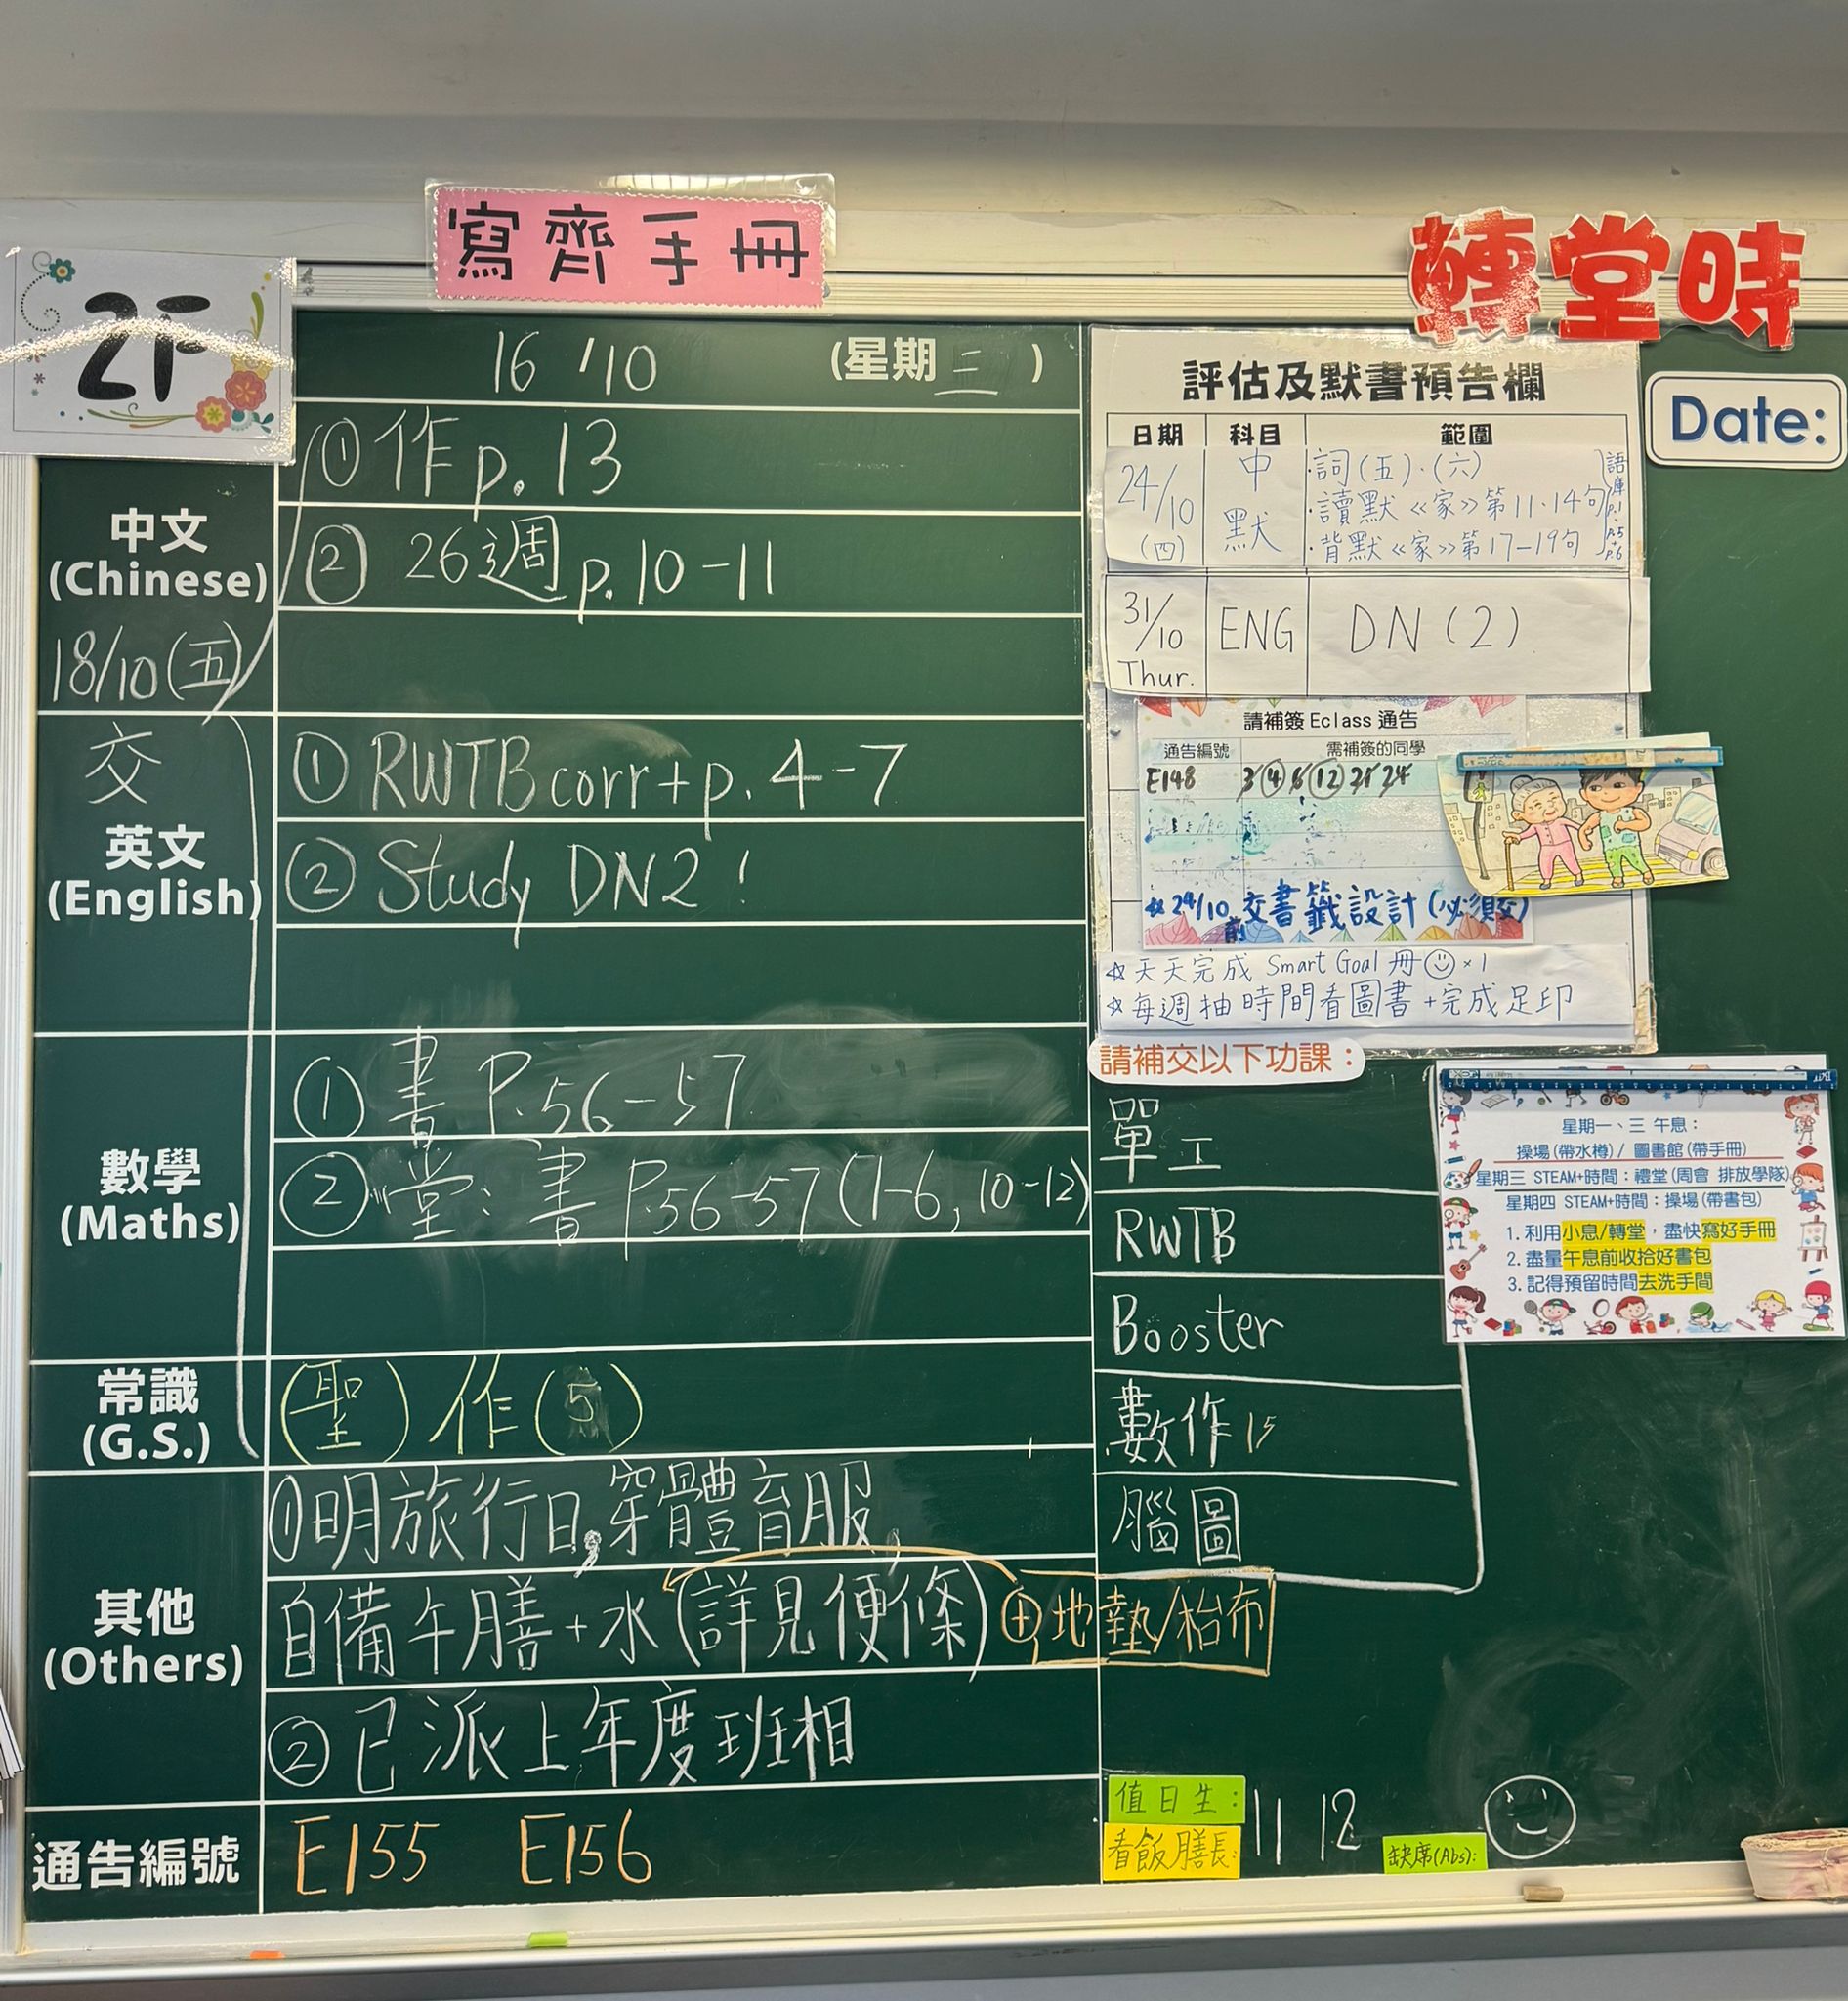 寫齊手冊
轉堂時
2F
16/10 (星期三)
Date:
中文
(Chinese)
18/10(五)
交
① 作 p.13
② 26週 p.10-11
英文
(English)
① RWTB corr + p.4-7
② Study DN2!
數學
(Maths)
① 書 P.56-57
② 堂: 書 P.56-57 (1-6, 10-12)
常識
(G.S.)
(聖) 作 (5)
其他
(Others)
①明旅行日,穿體育服,
自備午膳+水(詳見便條)⊕地墊/枱布
② 已派上年度班相
通告編號
E155 E156
評估及默書預告欄
日期 科目 範圍
24/10 (四)
中默
·詞(五)·(六)
·讀默《家》第11-14句
·背默《家》第17-19句
語庫
31/10 Thur. ENG DN (2)
請補簽 Eclass 通告
通告編號 需補簽的同學
E148 3 ④ 6 ⑫ 21 24
☆24/10前 交書籤設計(必須交)
☆天天完成 Smart Goal 冊☺×1
☆每週抽時間看圖書+完成足印
請補交以下功課:
單工
RWTB
Booster
數作 15
腦圖
星期一、三 午息:
操場(帶水樽)/ 圖書館(帶手冊)
星期三 STEAM+時間:禮堂(周會 排放學隊)
星期四 STEAM+時間:操場(帶書包)
1. 利用小息/轉堂,盡快寫好手冊
2. 盡量午息前收拾好書包
3. 記得預留時間去洗手間
值日生: 11 12
看飯膳長:
缺席(Abs):